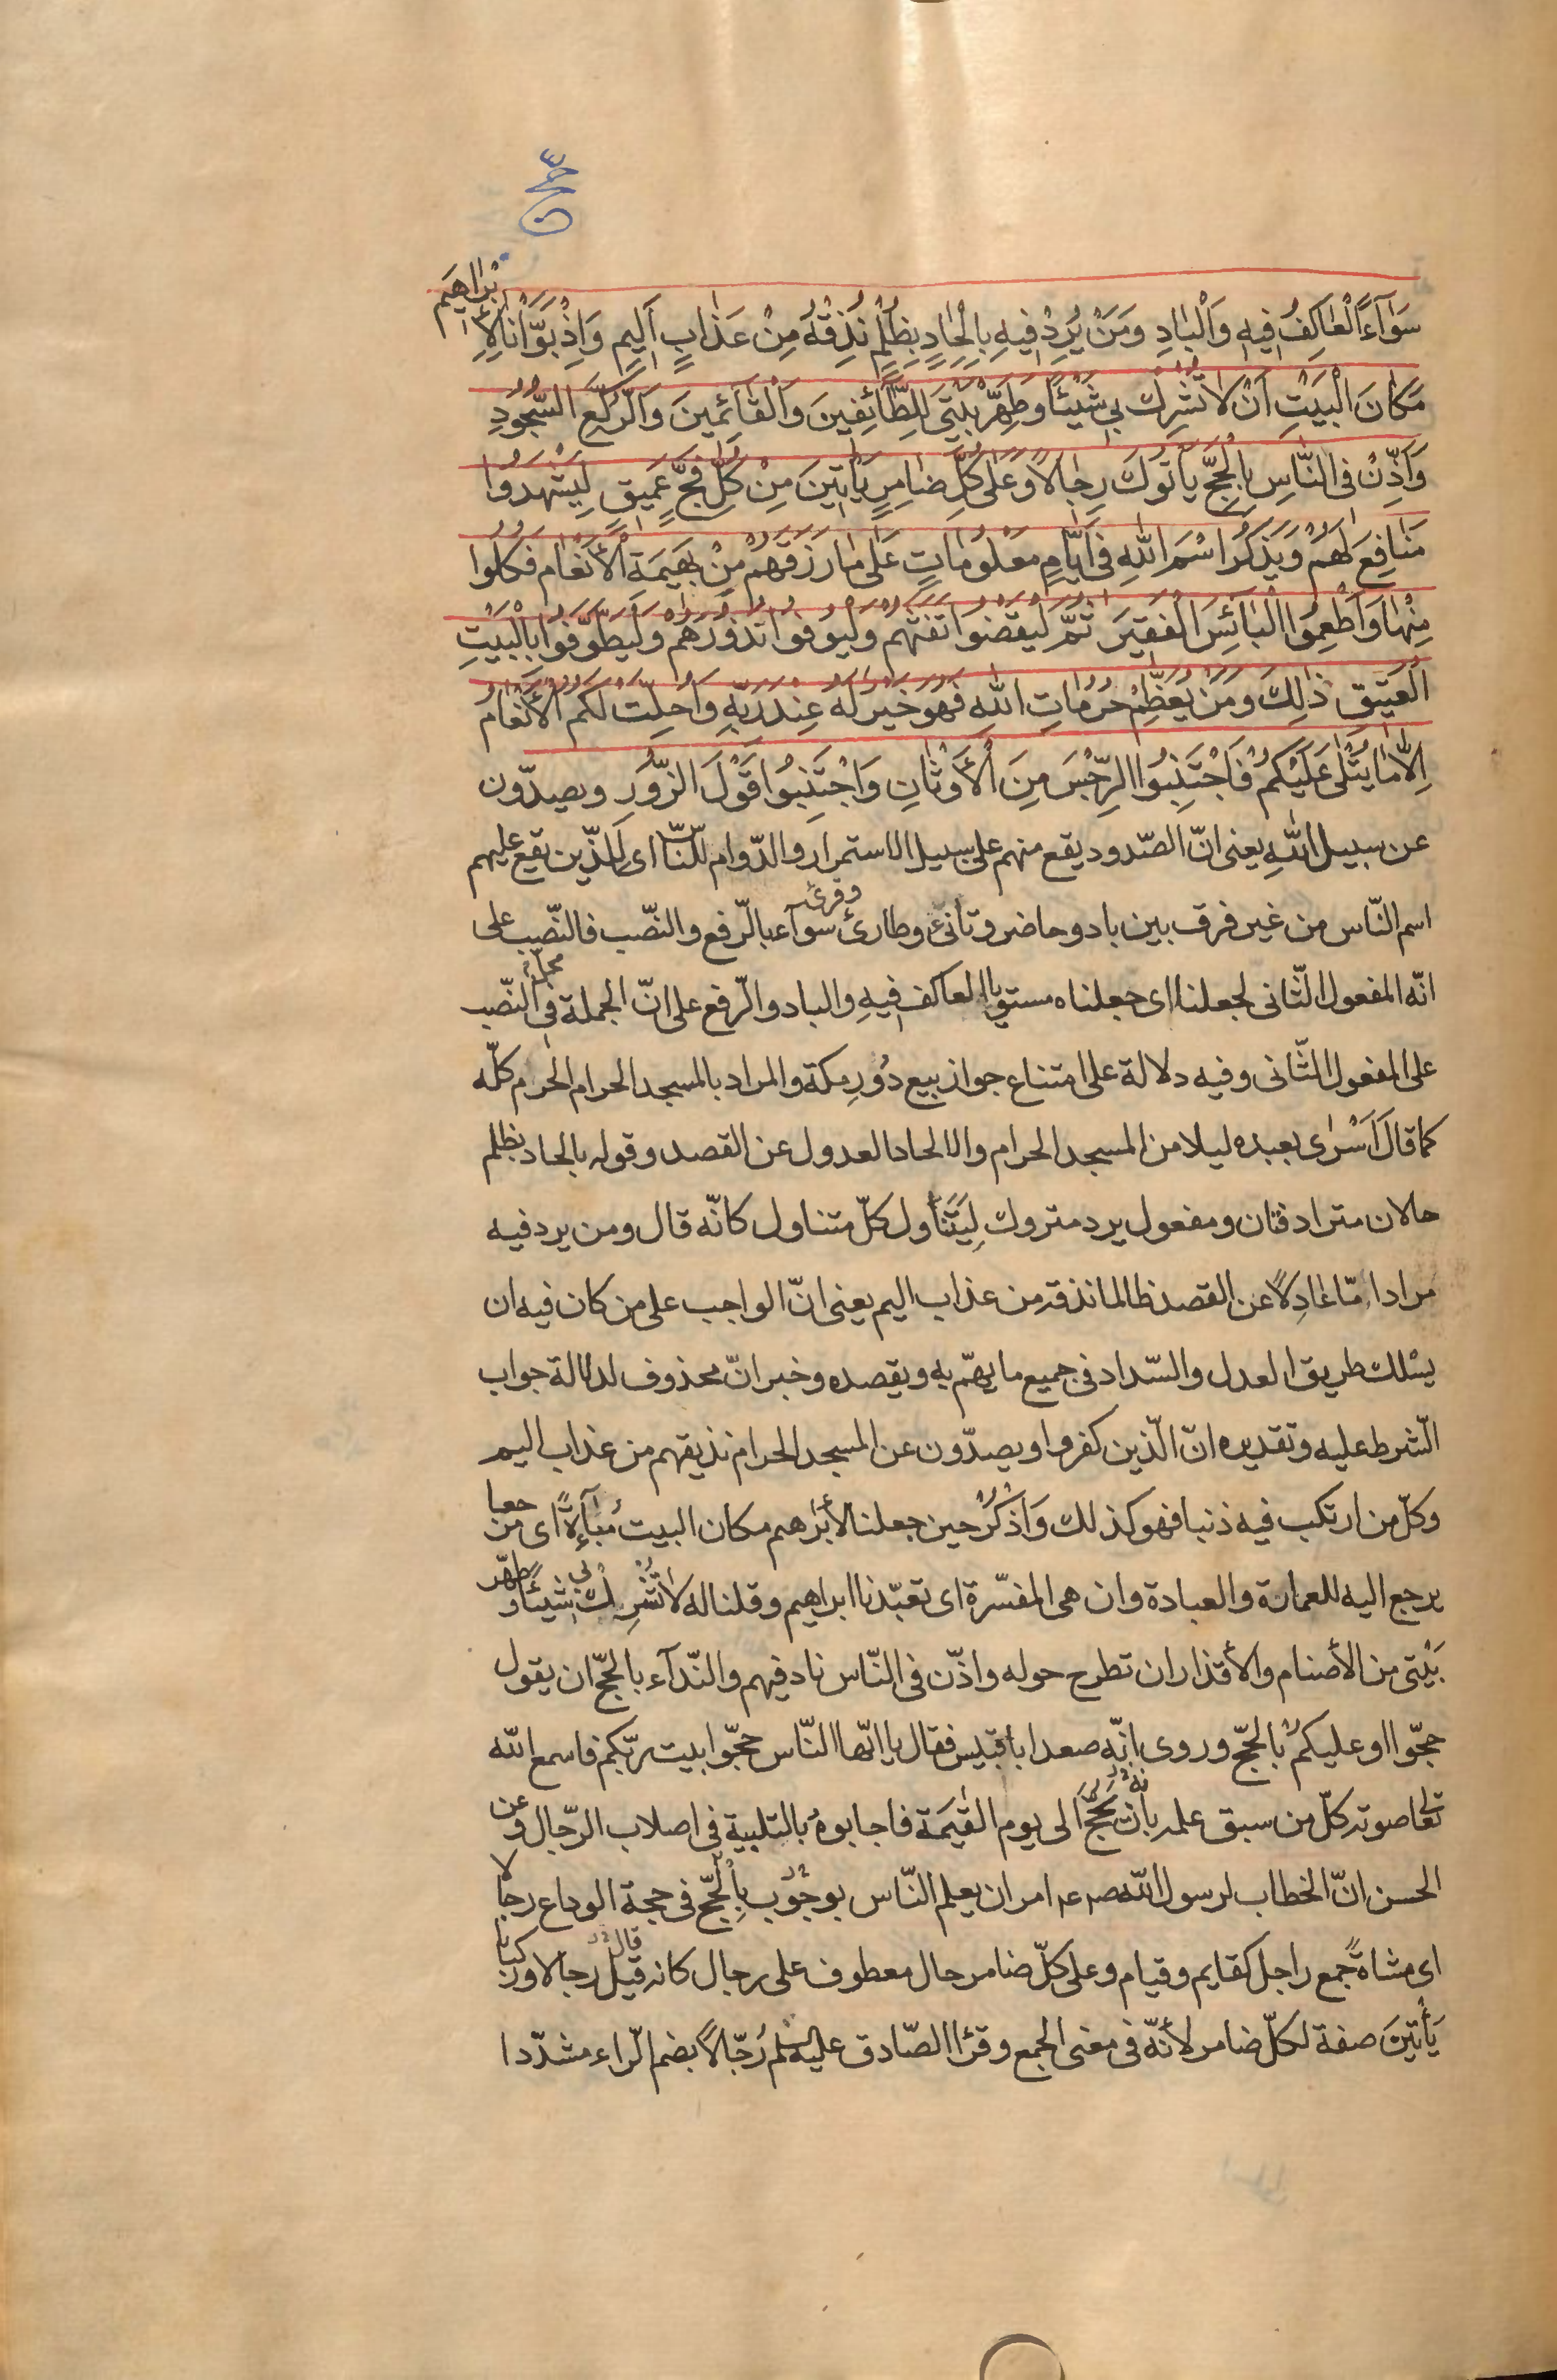 حج
سَوَآءً الْعَاكِفُ فِيهِ وَالْبَادِ وَمَنْ يُرِدْ فِيهِ بِاِلْحَادٍ بِظُلْمٍ نُذِقْهُ مِنْ عَذَابٍ اَلِيمٍ وَاِذْ بَوَّأْنَا لِاِبْرَاهِيمَ
مَكَانَ الْبَيْتِ اَنْ لَا تُشْرِكْ بِي شَيْئًا وَطَهِّرْ بَيْتِيَ لِلطَّآئِفِينَ وَالْقَآئِمِينَ وَالرُّكَّعِ السُّجُودِ
وَاَذِّنْ فِي النَّاسِ بِالْحَجِّ يَأْتُوكَ رِجَالًا وَعَلَى كُلِّ ضَامِرٍ يَأْتِينَ مِنْ كُلِّ فَجٍّ عَمِيقٍ لِيَشْهَدُوا
مَنَافِعَ لَهُمْ وَيَذْكُرُوا اسْمَ اللهِ فِي اَيَّامٍ مَعْلُومَاتٍ عَلَى مَا رَزَقَهُمْ مِنْ بَهِيمَةِ الْأَنْعَامِ فَكُلُوا
مِنْهَا وَاَطْعِمُوا الْبَآئِسَ الْفَقِيرَ ثُمَّ لْيَقْضُوا تَفَثَهُمْ وَلْيُوفُوا نُذُورَهُمْ وَلْيَطَّوَّفُوا بِالْبَيْتِ
الْعَتِيقِ ذَلِكَ وَمَنْ يُعَظِّمْ حُرُمَاتِ اللهِ فَهُوَ خَيْرٌ لَهُ عِنْدَ رَبِّهِ وَاُحِلَّتْ لَكُمُ الْأَنْعَامُ
اِلَّا مَا يُتْلَى عَلَيْكُمْ فَاجْتَنِبُوا الرِّجْسَ مِنَ الْأَوْثَانِ وَاجْتَنِبُوا قَوْلَ الزُّورِ ويصدّون
عن سبيل اللهِ يعنى انّ الصّدود يقع منهم على سبيل الاستمرار والدّوام للنّاس اى للّذين يقع عليهم
اسم النّاس من غير فرق بين باد وحاضر وتانئ وطارئ وقرئ سوآء بالرّفع والنّصب فالنّصب على
انّه المفعول الثّانى لجعلنا اى جعلناه مستويا العاكف فيهِ والباد والرّفع على انّ الجملة فى محلّ النّصب
على المفعول الثّانى وفيه دلالة على امتناع جواز بيع دُورِ مكة والمراد بالمسجد الحرام الحرم كلّه
كما قالَ اَسْرٰى بعبده ليلا من المسجد الحرام والالحاد العدول عن القصد وقوله بالحاد بظلم
حالان مترادفتان ومفعول يرد متروك لِيَتَنَاول كلّ متناول كانّه قال ومن يرد فيه
مرادا مّا عَادِلًا عن القصد ظالما نذقه من عذاب اليم يعنى انّ الواجب على من كان فيه ان
يسْلك طريق العدل والسّداد فى جميع ما يهمّ به ويقصده وخبر انّ محذوف لدلالة جواب
الشّرط عليه وتقديره انّ الّذين كفروا ويصدّون عن المسجد الحرام نذيقهم من عذاب اليم
وكلّ من ارتكب فيه ذنبا فهو كذلك وَاذْكُرْ حين جعلنا لأبرٰهيم مكان البيت مُبَآءةً اى مرجعا
يرجع اليه للعمارة والعبادة وان هى المفسّرة اى تعبّدنا ابراهيم وقلنا له لَا تُشْرِكْ بى شَيْئًا وَطهّر
بَيْتى من الأصنام والأقذار ان تطرح حوله واذّن فى النّاس ناد فيهم والنّدآء بالحجّ ان يقول
حجّوا او عليكمْ بالحَجّ وروى انّه صعد ابا قبيس فقال يا ايّها النّاس حجّوا بيت ربّكم فاسمع الله
تعالى صوته كلّ من سبق علمه بأنّه يَحُجّ الى يوم القيٰمَة فاجابوهُ بالتلبية فى اصلاب الرّجال وعن
الحسن انّ الخطاب لرسول الله صم امر ان يعلم النّاس بوجُوب الْحَجّ فى حجة الوداع رجالا
اى مشاةً جمع راجل كقايم وقيام وعلى كلّ ضامر حال معطوف على رجال كانه قيل قال رجالا وركبانا
يَأْتينَ صفة لكلّ ضامر لأنّه فى معنى الجمع وقرٔا الصّادق عليه السلم رُجّالًا بضم الرّاء مشدّدا